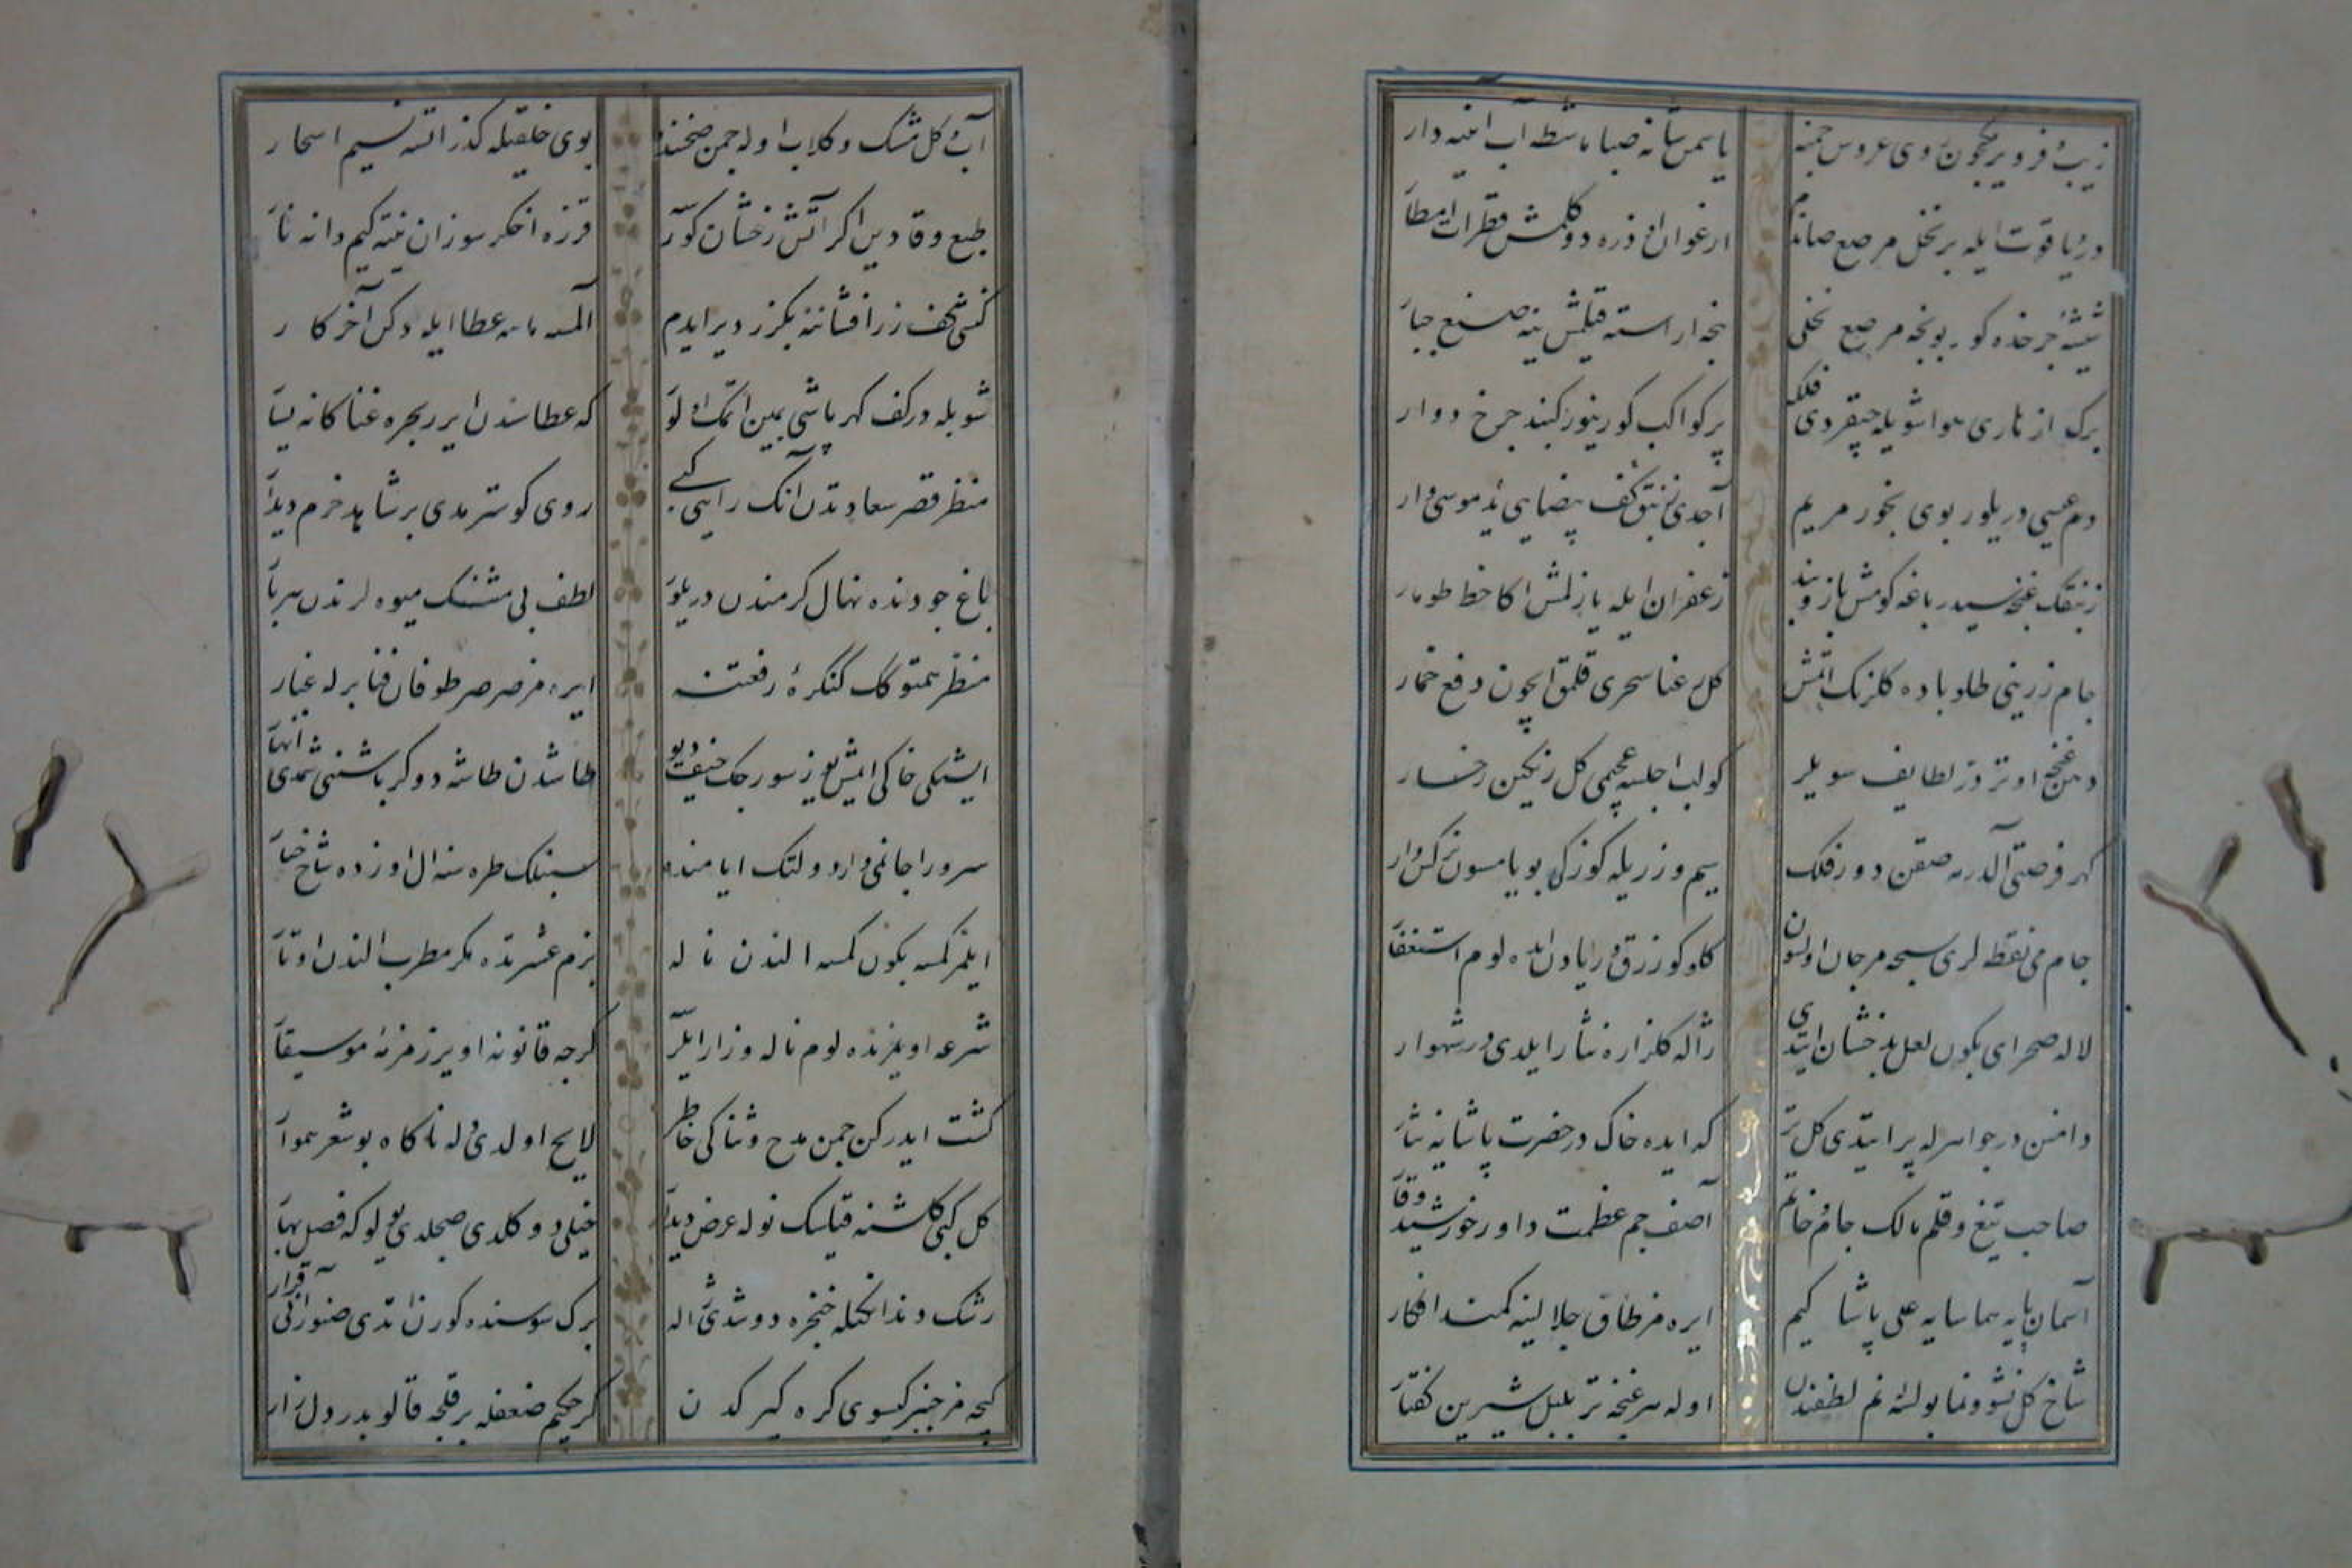 زیب و فر ویرمكچون روی عروس چمنه
یاسمن شانه صبا ماشطه آب آینه دار
در و یاقوت ایله بر نخل مرصع صاندم
ارغوان اوزره دوكلمش قطرات امطار
شیشهٔ چرخده كور بونجه مرصع نخلی
نیجه آراسته قیلمش ینه صنع جبار
برك ازهاری هوا شویله چیقردی فلكه
پر كواكب كورینور كنبد چرخ دوار
دم عیسی دریلور بوی بخور مریم
آچدی زنبق كف بیضایی ید موسی وار
زنبقك غنچه سیدر باغه كومش بازوبند
زعفران ایله یازلمش اكا خط طومار
جام زرینی طلو باده كلرنك اتمش
كل رعنا سحری قلمق ایچون دفع خمار
دهن غنچه تر درلو لطایف سویلر
كولب اچلسه عجبمی كل رنكین رخسار
كهر فرصتی آلدرمه صقن دور فلك
سیم و زریله كوزكی بویامسون نركس وار
جام می نقطه لری سبحه مرجان اولسون
كلوكوز زرق و ریادن ایده لوم استغفار
لاله صحرای بكون لعل بدخشان ایتدی
ژاله كلزاره نثار ایلدی در شهوار
دامنن در جواهرله پر ایتدی كل تر
كه ایده خاك در حضرت پاشایه نثار
صاحب تیغ و قلم مالك جام و خاتم
آصف جم عظمت داور خورشید وقار
آسمان پایه هما سایه علی پاشا كیم
ایره مز طاق جلالینه كمند افكار
شاخ كل نشو و نما بولسه نم لطفندن
اوله هر غنچه تر بلبل شیرین كفتار
آب كل مشك و كلاب اوله چمن صحننده
بوی خلقیله كذر اتسه نسیم اسحار
طبع وقادین اكر آتش رخشان كورر
قزره اخكر سوزان نته كیم دانه نار
كنسی كف زر افشاننه بكزر دیر ایدم
المسه عطا ایله دكن آخر كار
شویله در كف كهر پاشی یمین اتمك اولور
كه عطاسندن ایرر بحره غنا كانه یسار
منظر قصر سعادتدن آنك رایی كبی
روی كوسترمدی بر شاهد خرم دیدار
باغ جودنده نهال كرمندن دریلور
لطف بی منتنك میوه لرندن هر بار
منظر همتوكك كنكرهٔ رفعتنه
ایره مز صرصر طوفان فنا برله غبار
ایشیكی خاكی ایمش یوز سوره جك حیف دیو
طاشدن طاشه دوكر باشنی شمدی انهار
سرورا جانمی وار دولتك ایامنده
سنبلك طره سنه ال اوزده شاخ چنار
ایلمز كمسه بكون كمسه الندن ناله
بزم عشرتده مكر مطرب الندن اوتار
شرعه اویمزنده لوم ناله و زار ایلر
كرچه قانونه اویر زمزمهٔ موسیقار
كشت ایدركن چمن مدح و ثناكی خاطر
لایح اولدی دله ناكاه بو شعر هموار
كل كبی كلشنه قیلسك نوله عرض دیدار
خیلی دوكلدی صچلدی یولوكه فصل بهار
رشك دندانكله خنجره دوشدی ژاله
برك سوسنده كورن اتدی صنور آنی قرار
كیجه مز چنبر كیسوی كره كیر كدن
كرچكیم ضعفله بر قلجه قالوبدر دل زار